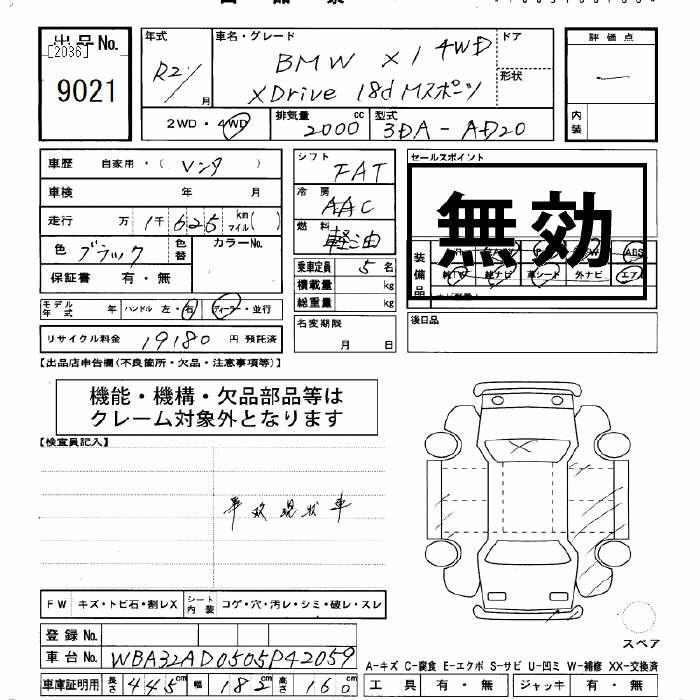 出品No.
[2036]
9021
年式
R2/
月
車名・グレード
BMW X1 4WD
XDrive 18d Mスポーツ
ドア
形状
評価点
内装
2WD・4WD
排気量
2000 cc
型式
3DA-AD20
車歴 自家用・( レンタ )
車検 年 月
走行 万 1千625 km マイル( )
色 ブラック 色替 カラーNo.
保証書 有・無
モデル年式 年 ハンドル 左・右 ディーラー・並行
リサイクル料金 19180 円 預託済
シフト FAT
冷房 AAC
燃料 軽油
乗車定員 5 名
積載量 kg
総重量 kg
名変期限
月 日
セールスポイント
無効
装備品
ABS
革シート 外ナビ エア
後日品
【出品店申告欄(不良箇所・欠品・注意事項等)】
機能・機構・欠品部品等は
クレーム対象外となります
【検査員記入】
事故現状車
FW キズ・トビ石・割レX シート内装 コゲ・穴・汚レ・シミ・破レ・スレ
登録No.
車台No. WBA32AD0505P42059
車庫証明用 長さ 445cm 幅 182cm 高さ 160cm
スペア
A-キズ C-腐食 E-エクボ S-サビ U-凹ミ W-補修 XX-交換済
工具 有・無 ジャッキ 有・無